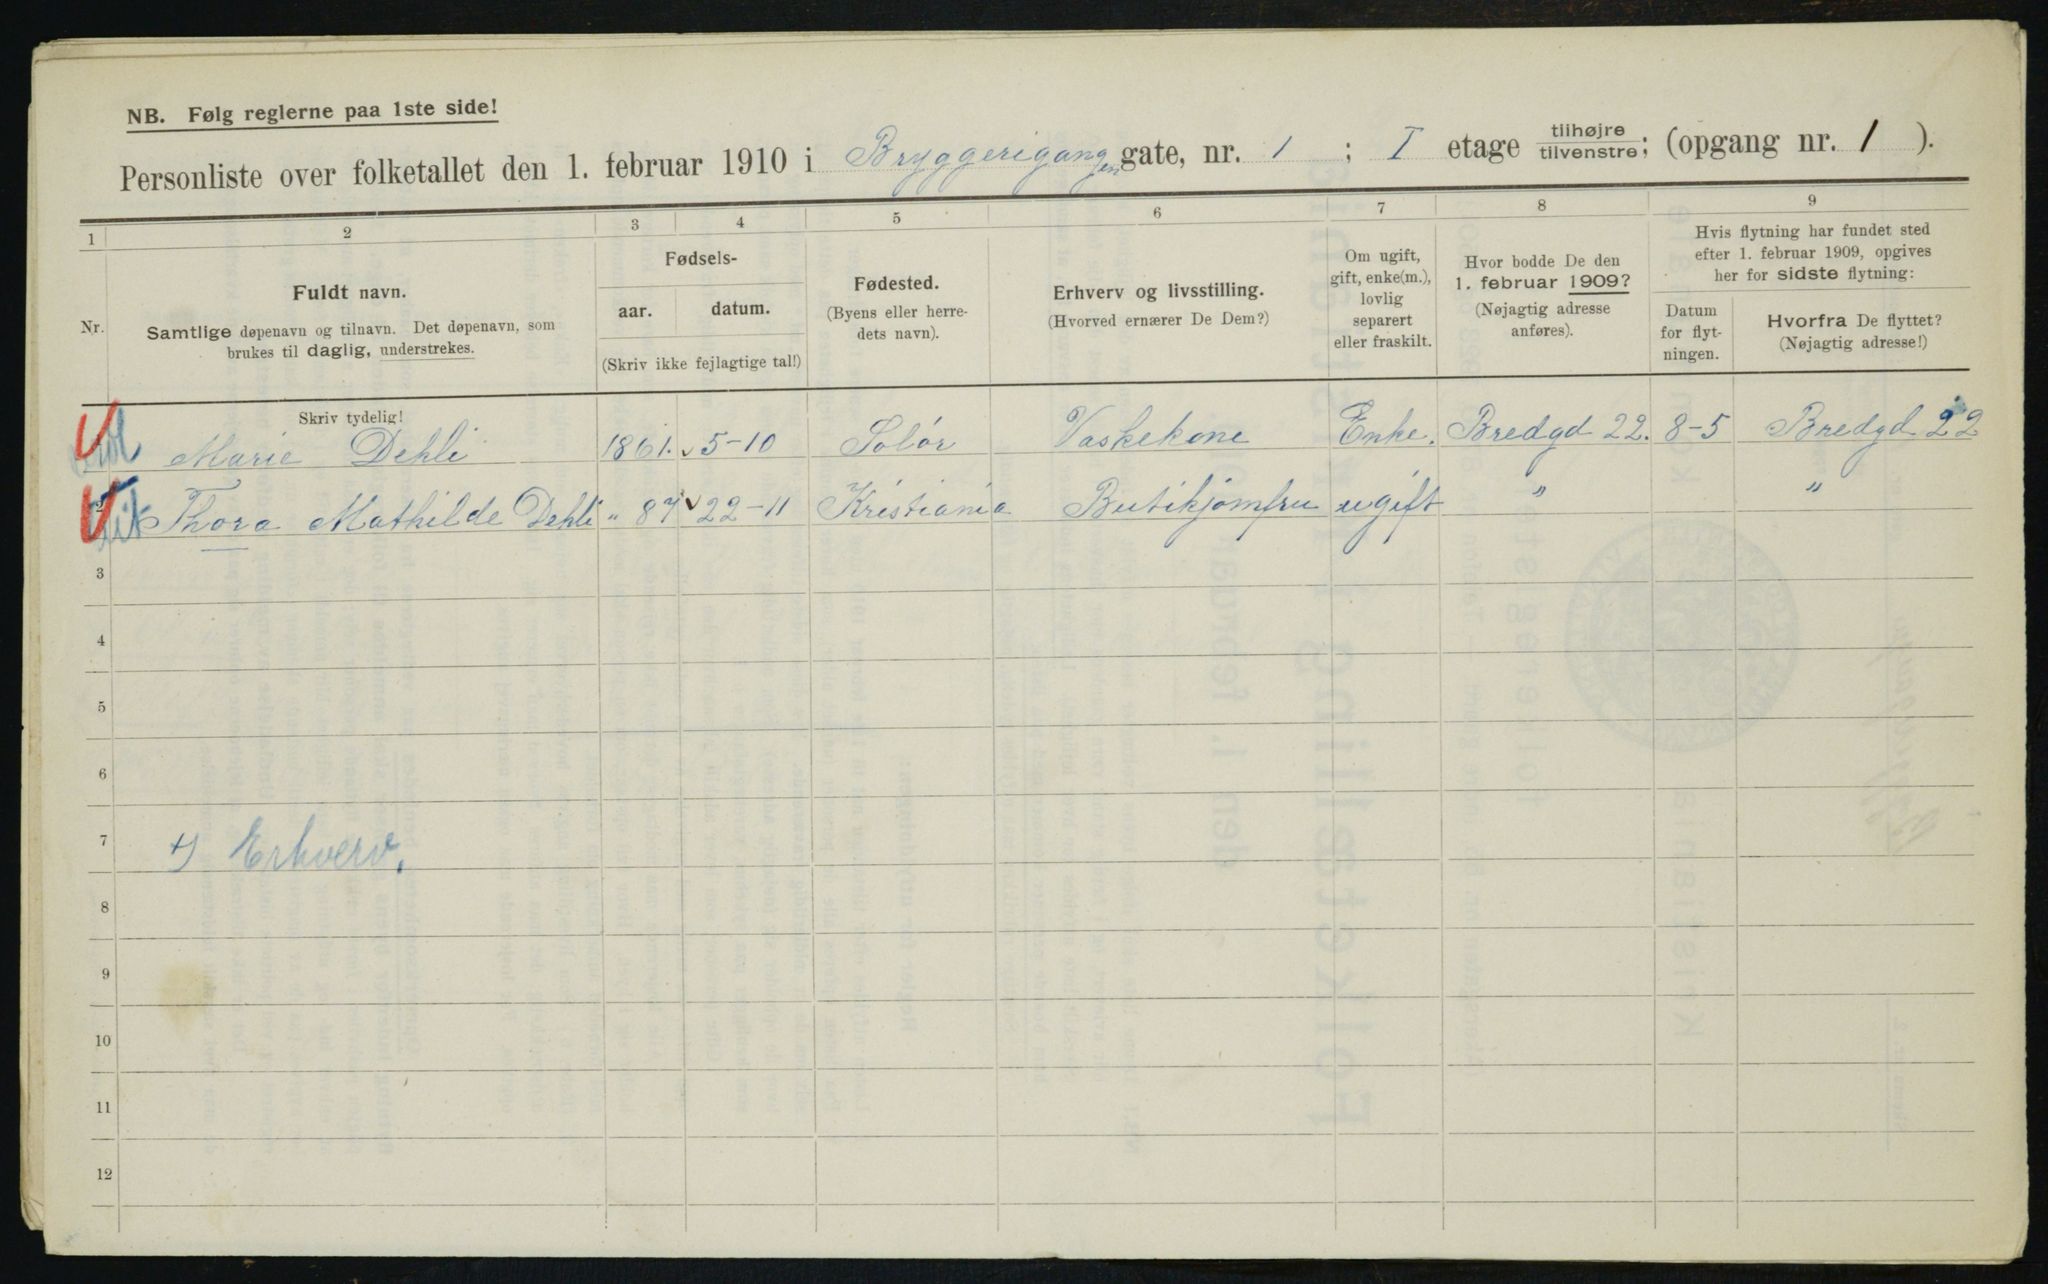 NB. Følg reglerne paa 1ste side!
Personliste over folketallet den 1. februar 1910 i Bryggerigangen gate, nr. 1 ; I etage tilhøjre tilvenstre; (opgang nr. 1 ).
1 2 3 4 5 6 7 8 9
Nr.
Fuldt navn.
Samtlige døpenavn og tilnavn. Det døpenavn, som
brukes til daglig, understrekes.
Fødsels-
aar. datum.
(Skriv ikke fejlagtige tal!)
Fødested.
(Byens eller herre-
dets navn).
Erhverv og livsstilling.
(Hvorved ernærer De Dem?)
Om ugift,
gift, enke(m.),
lovlig
separert
eller fraskilt.
Hvor bodde De den
1. februar 1909?
(Nøjagtig adresse
anføres).
Hvis flytning har fundet sted
efter 1. februar 1909, opgives
her for sidste flytning:
Datum
for flyt-
ningen.
Hvorfra De flyttet?
(Nøjagtig adresse!)
Skriv tydelig!
Marie Dehli 1861. 5-10 Solør Vaskekone Enke. Bredgd 22. 8-5 Bredgd 22
2 Thora Mathilde Dehli " 87 22-11 Kristiania Butikjomfru ugift " "
3
4
5
6
7 Erhverv.
8
9
10
11
12